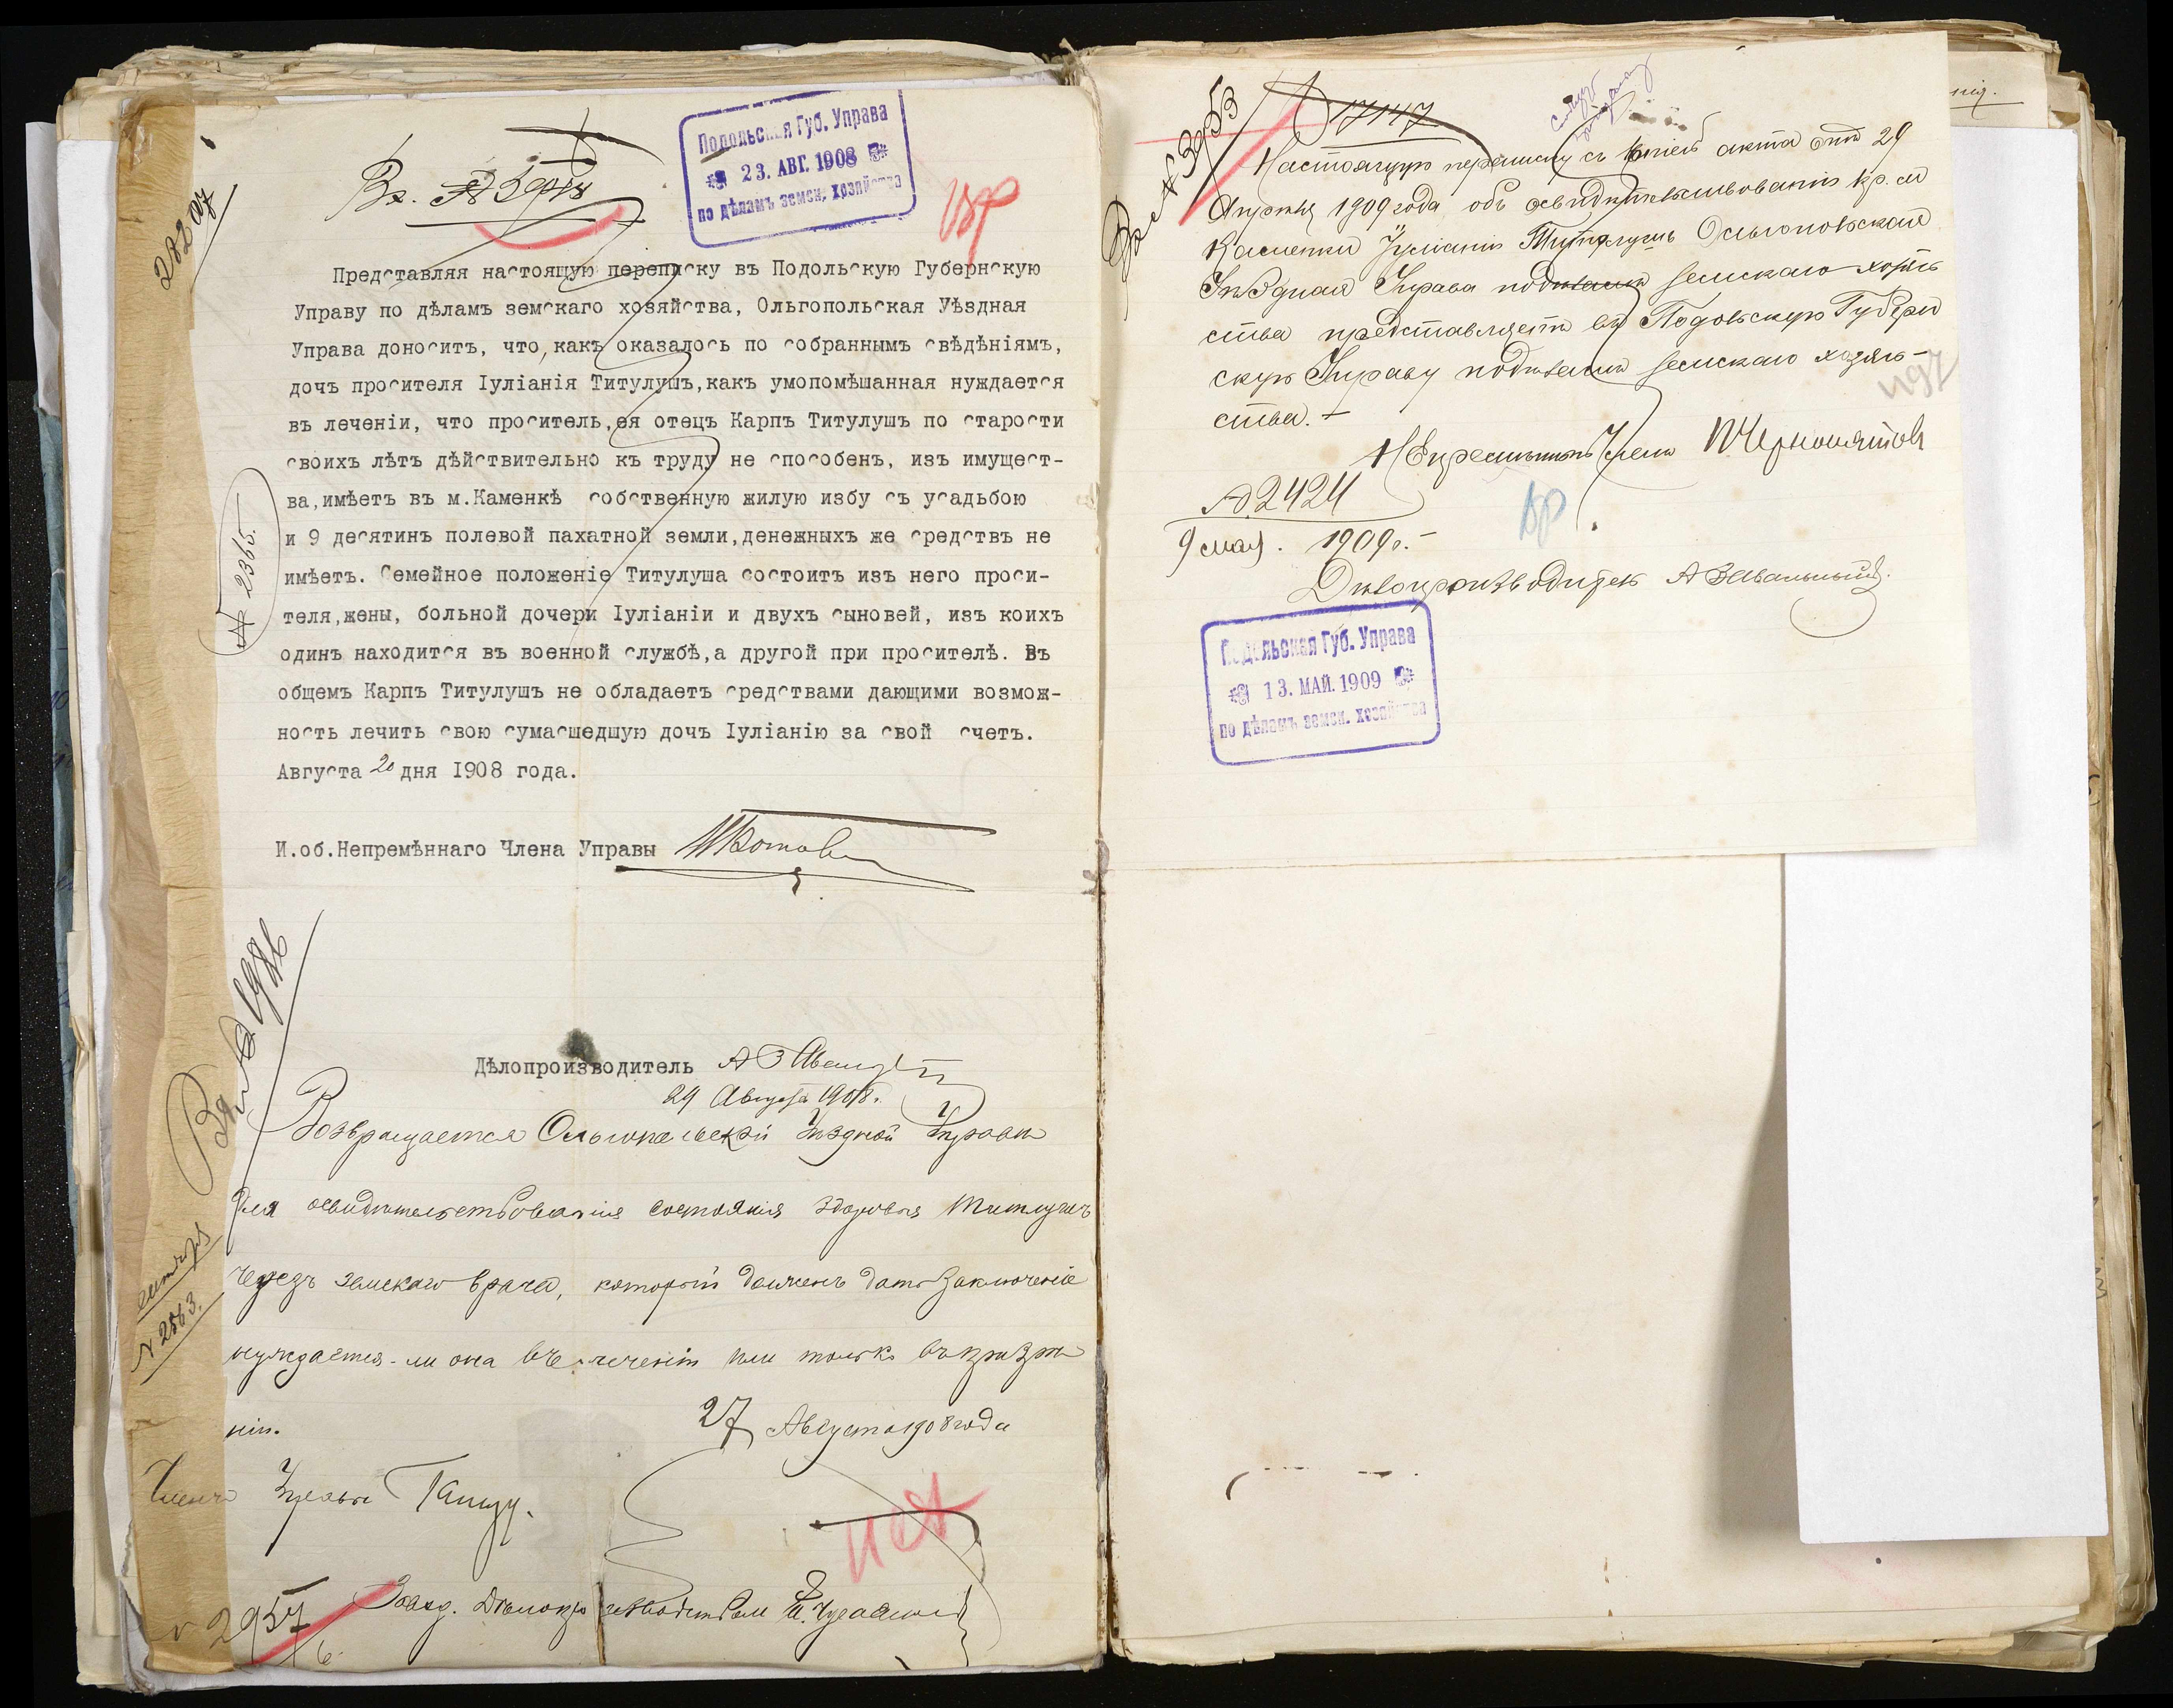 Подольская Губ. Управа
23. АВГ. 1908
по дѣламъ земск. хозяйства
Представляя настоящую переписку въ Подольскую Губернскую
Управу по дѣламъ земскаго хозяйства, Ольгопольская Уѣздная
Управа доноситъ, что, какъ оказалось по собраннымъ свѣдѣніямъ,
дочъ просителя Іуліанія Титулушъ, какъ умопомѣшанная нуждается
въ леченіи, что проситель, ея отецъ Карпъ Титулушъ по старости
своихъ лѣтъ дѣйствительно къ труду не способенъ, изъ имущест-
ва, имѣетъ въ м. Каменкѣ собственную жилую избу съ усадьбою
и 9 десятинъ полевой пахатной земли, денежныхъ же средствъ не
имѣетъ. Семейное положеніе Титулуша состоитъ изъ него проси-
теля, жены, больной дочери Іуліаніи и двухъ сыновей, изъ коихъ
одинъ находится въ военной службѣ, а другой при просителѣ. Въ
общемъ Карпъ Титулушъ не обладаетъ средствами дающими возмож-
ность лечить свою сумасшедшую дочъ Іуліанію за свой счетъ.
Августа 20 дня 1908 года.
№ 2365.
И.об.Непремѣннаго Члена Управы
Дѣлопроизводитель
29 Августа 1908.
Возвращается Ольгопольской Уѣздной Управѣ
для освидѣтельствованія состоянія здоровья Титулушъ
черезъ земскаго врача, который долженъ дать заключеніе
нуждается-ли она въ леченіи или только въ призрѣ
ніи.
27 Августа 1908 года
Членъ Управы
№ 2563.
2957
Завѣд. Дѣлопроизводствомъ
17147
Вх. № 3953
Настоящую переписку съ копіей акта отъ 29
Апрѣля 1909 года объ освидѣтельствованіи кр. м.
Каменки Іуліаніи Титулушъ Ольгопольская
Уѣздная Управа по дѣламъ земскаго хозяй
ства представляетъ въ Подольскую Губерн
скую Управу по дѣламъ земскаго хозяй-
ства.-
Непремѣнный Членъ
№ 2424
9 мая. 1909г.-
Дѣлопроизводитель
Подольская Губ. Управа
13. МАЙ. 1909
по дѣламъ земск. хозяйства